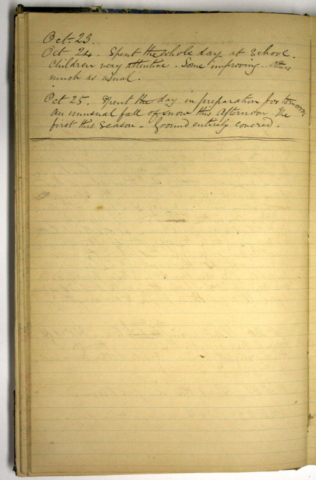 Oct 23.
Oct 24. Spent the whole day at School.
Children very attentive. Some improving. Others
much as usual.
Oct 25. Spent the day in preparation for
an unusual fall of snow this afternoon. The
first this season. Ground entirely covered.